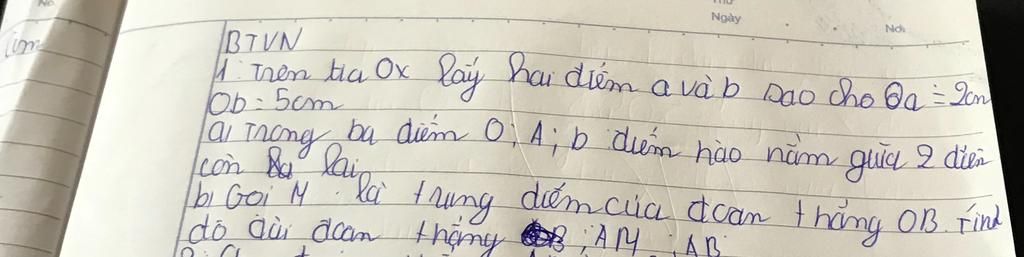 Ngày
BTVN
1. Trên tia Ox lấy hai điểm a và b sao cho Oa = 2cm
Ob = 5cm
a) Trong ba điểm O; A; b điểm nào nằm giữa 2 điểm
còn lại
b) Gọi M là trung điểm của đoạn thẳng OB. Tính
độ dài đoạn thẳng B; AM; AB